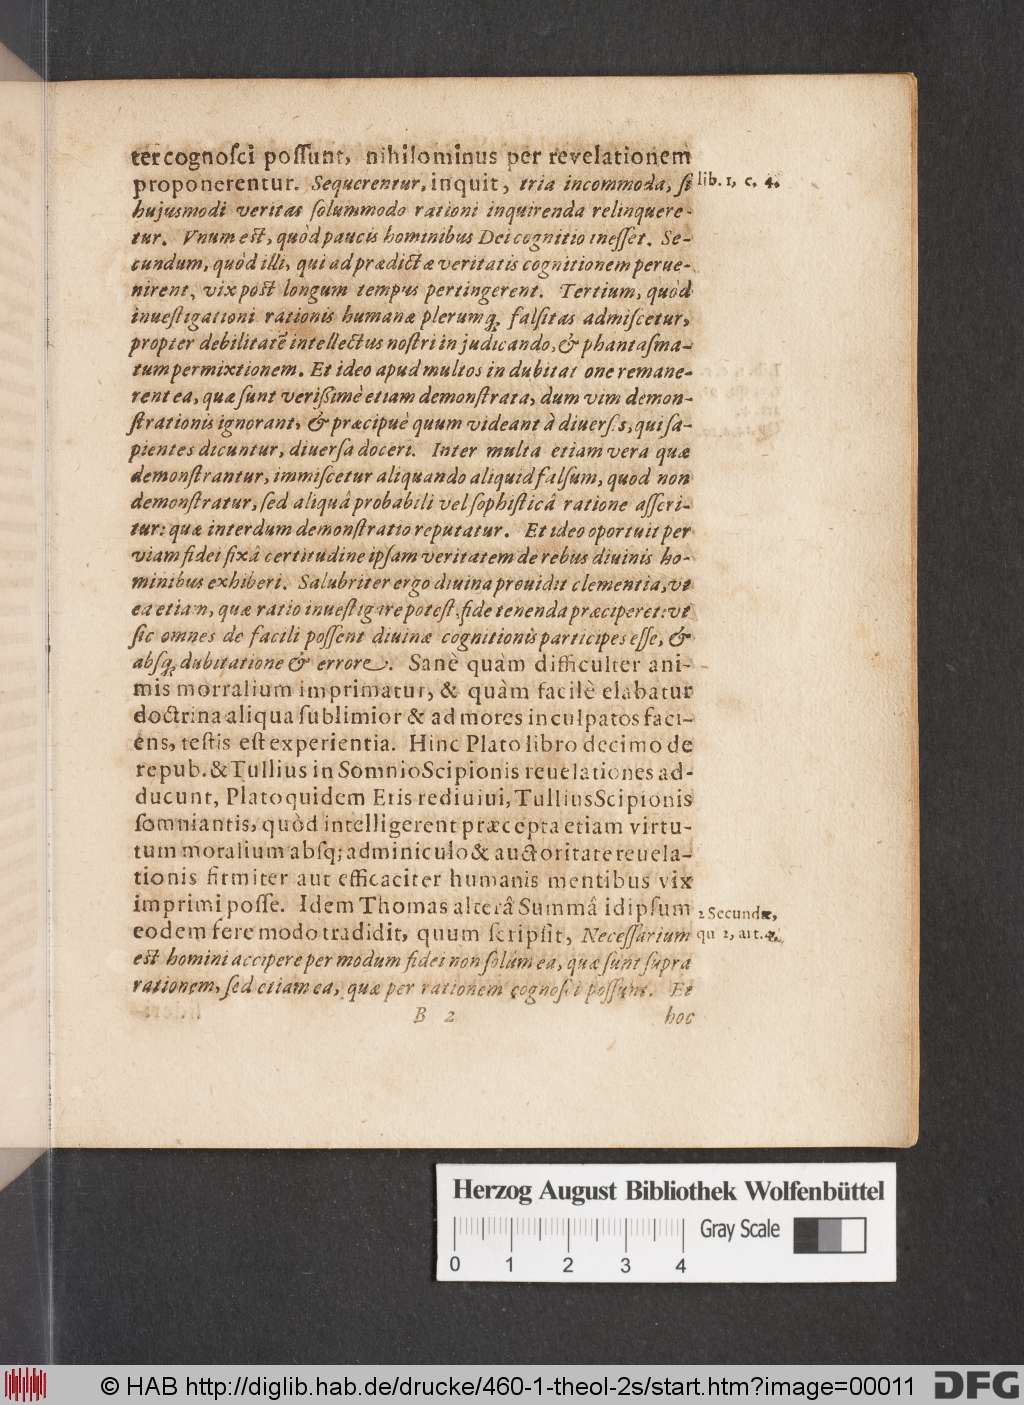 ter cognoſci poſſunt, nihilominus per revelationem
proponerentur. Sequerentur, inquit, tria incommoda, ſi
lib. 1, c. 4.
hujusmodi veritas ſolummodo rationi inquirenda relinquere-
tur. Vnum eſt, quòd paucis hominibus Dei cognitio ineſſet. Se-
cundum, quòd illi, qui ad prædictæ veritatis cognitionem perue-
nirent, vix poſt longum tempus pertingerent. Tertium, quòd
inueſtigationi rationis humanæ plerumq; falſitas admiſcetur,
propter debilitatē intellectus noſtri in judicando, & phantaſma-
tum permixtionem. Et ideo apud multos in dubitatione remane-
rent ea, quæ ſunt veriſſimè etiam demonſtrata, dum vim demon-
ſtrationis ignorant, & præcipuè quum videant à diuerſis, qui ſa-
pientes dicuntur, diuerſa doceri. Inter multa etiam vera quæ
demonſtrantur, immiſcetur aliquando aliquid falſum, quod non
demonſtratur, ſed aliquâ probabili vel ſophiſticâ ratione aſſeri-
tur: quæ interdum demonſtratio reputatur. Et ideo oportuit per
viam fidei fixâ certitudine ipſam veritatem de rebus diuinis ho-
minibus exhiberi. Salubriter ergo diuina prouidit clementia, vt
ea etiam, quæ ratio inueſtigare poteſt, fide tenenda præciperet: vt
ſic omnes de facili poſſent diuinæ cognitionis participes eſſe, &
abſq; dubitatione & errore. Sanè quàm difficulter ani-
mis morralium imprimatur, & quàm facilè elabatur
doctrina aliqua ſublimior & ad mores inculpatos faci-
ens, teſtis eſt experientia. Hinc Plato libro decimo de
repub. & Tullius in Somnio Scipionis reuelationes ad-
ducunt, Plato quidem Eris rediuiui, Tullius Scipionis
ſomniantis, quòd intelligerent præcepta etiam virtu-
tum moralium abſq; adminiculo & auctoritate reuela-
tionis firmiter aut efficaciter humanis mentibus vix
imprimi poſſe. Idem Thomas alterâ Summâ idipſum
2 Secundæ,
eodem fere modo tradidit, quum ſcripſit, Neceſſarium
qu 2, art. 4.
eſt homini accipere per modum fidei non ſolùm ea, quæ ſunt ſupra
rationem, ſed etiam ea, quæ per rationem cognoſci poſſunt. Et
B 2
hoc
Herzog August Bibliothek Wolfenbüttel
Gray Scale
0 1 2 3 4
© HAB http://diglib.hab.de/drucke/460-1-theol-2s/start.htm?image=00011
DFG